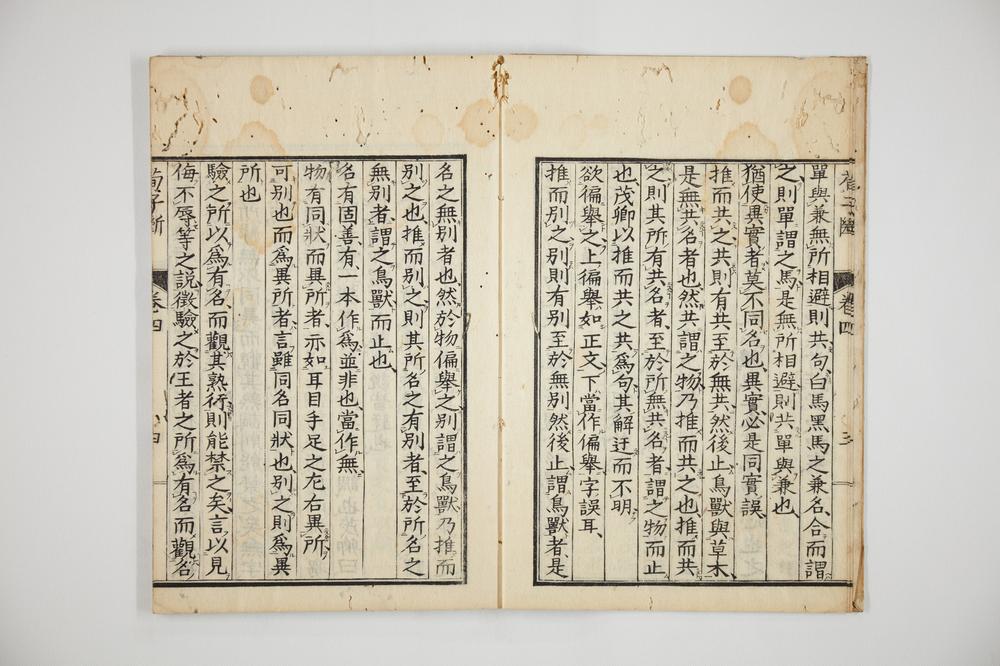 單與兼無所相避則共句白馬黑馬之兼名合而謂
之則單謂之馬是無所相避則共單與兼也
猶使異實者莫不同名也異實必是同實誤
推而共之共則有共至於無共然後止鳥獸與草木
是無共名者也然共謂之物乃推而共之也推而共
之則其所有共名者至於所無共名者謂之物而止
也茂卿以推而共之共爲句其解迂而不明
欲徧舉之上徧舉如正文下當作偏舉字誤耳
推而別之別則有別至於無別然後止謂鳥獸者是
卷四
三
名之無別者也然於物偏舉之別謂之鳥獸乃推而
別之也推而別之則其所名之有別者至於所名之
無別者謂之鳥獸而止也
名有固善有一本作爲並非也當作無
物有同狀而異所者亦如耳目手足之左右異所
可別也而爲異所者言雖同名同狀也別之則爲異
所也
驗之所以爲有名而觀其熟行則能禁之矣言以見
侮不辱等之説徵驗之於王者之所爲有名而觀名
荀子斷
卷四
四